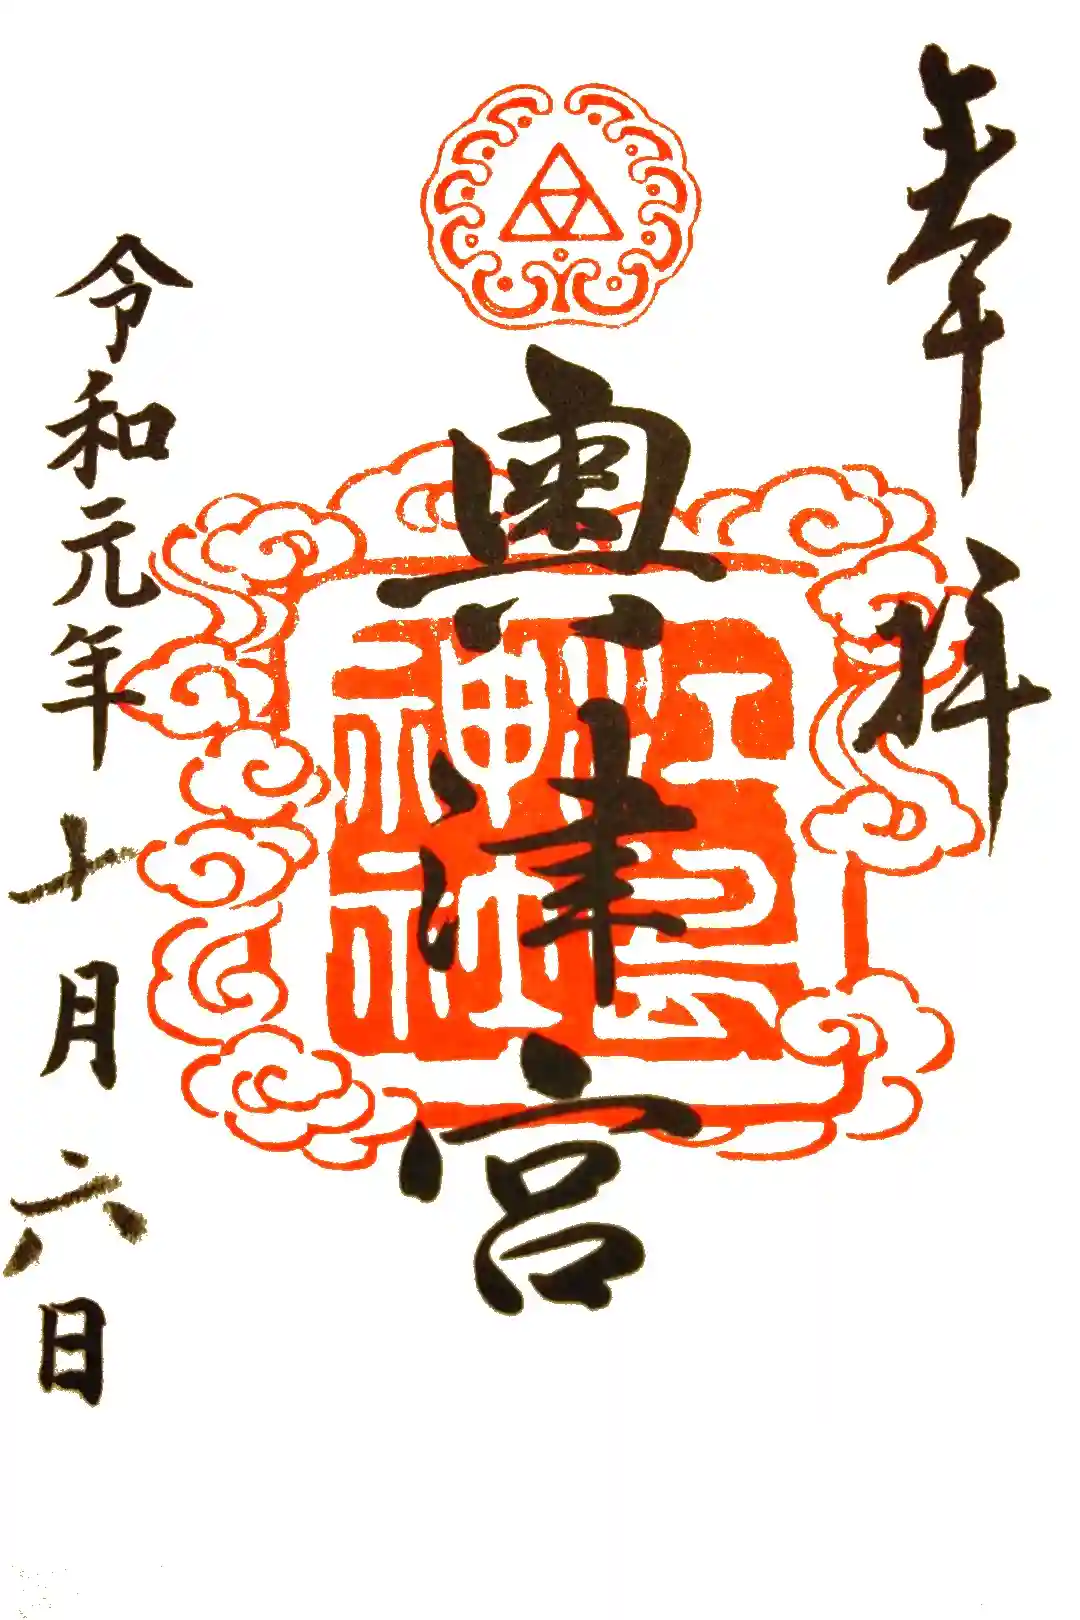 奉拝
奥津宮
江島神社
令和元年十月六日